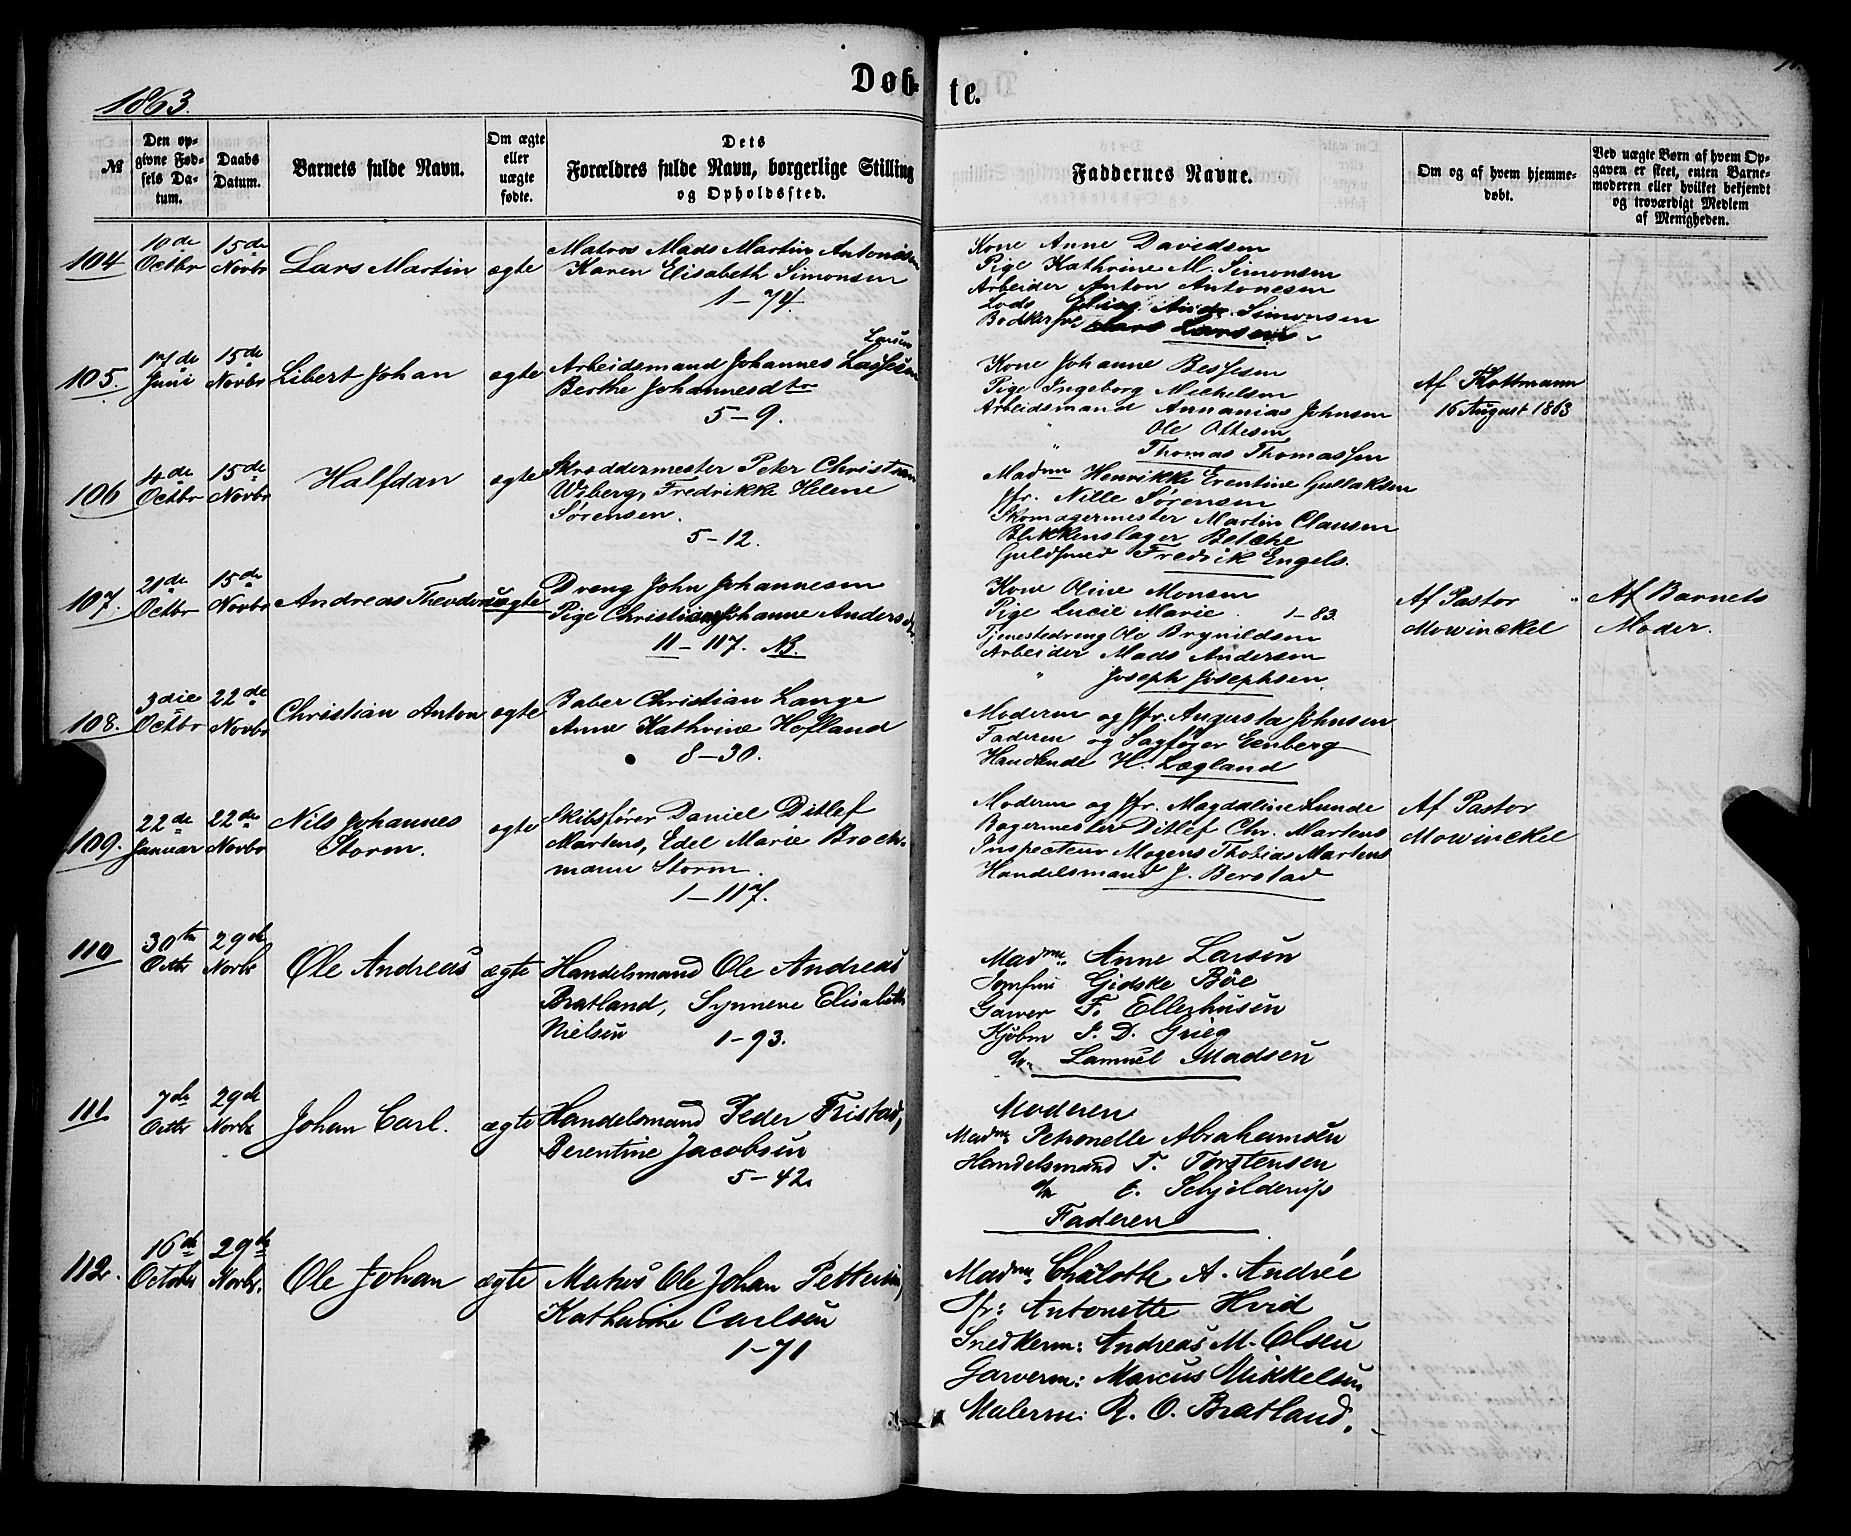 1863.
Døb-
te.
№
Den op-
givne Fød-
sels Da-
tum.
Daabs
Datum.
Barnets fulde Navn.
Om ægte
eller
uægte
fødte.
Dets
Forældres fulde Navn, borgerlige Stilling
og Opholdssted.
Faddernes Navne.
Om og af hvem hjemme-
døbt.
Ved uægte Børn af hvem Op-
gaven er skeet, enten Barne-
moderen eller hvilket bekjendt
og troværdigt Medlem
af Menigheden.
104
10de
Octbr
15de
Novbr
Lars Martin
ægte
Matros Mads Martin Antonisen
Karen Elisabeth Simonsen
1-74.
Kone Anne Davidsen
Pige Kathrine M. Simonsen
Arbeider Anton Antonesen
Lods Simonsen
Lars Larsen
105.
17de
Juni
15de
Novbr
Libert Johan
ægte
Larsen
Arbeidsmand Johannes Lassesen
Berthe Johannesdtr
5-9.
Kone Johanne Bessesen
Pige Ingeborg Michelsen
Arbeidsmand Annanias Johnsen
" Ole Ottesen
" Thomas Thomassen
Af Kottmann
16 August 1863
106
4de
Octbr
15de
Novbr
Halfdan
ægte
Skræddermester Peter Christian
Wiberg, Fredrikke Helene
Sørensen.
5-12.
Madme Henrikke Erentine Gullaksen
Jfr. Nille Sørensen
Skomagermester Martin Clausen
Blikkenslager Betche
Guldsmed Fredrik Engels.
107.
21de
Octbr
15de
Novbr
Andreas Theodor
uægte
Dreng John Johannesen
Pige Christiane Johanne Andersdr.
11-117. NB.
Kone Oline Monsen
Pige Lucie Marie 1-83.
Tjenestedreng Ole Brynildsen
Arbeider Mads Andersen
" Joseph Josephsen.
Af Pastor
Mowinckel
Af Barnets
Moder.
108.
3die
Octbr
22de
Novbr
Christian Anton
ægte
Baber Christian Lange
Anne Kathrine Hofland
8-30.
Moderen og Jfr. Augusta Johnsen
Faderen og Sagfører Eenberg
Handlende H. Lægland
109.
22de
Januar
22de
Novbr
Nils Johannes
Storm.
ægte
Skibsfører Daniel Ditlef
Martens, Edel Marie Broch-
mann Storm.
1-117.
Moderen og Jfr. Magdaline Lunde
Bagermester Ditlef Chr. Martens
Inspecteur Mogens Thobias Martens
Handelsmand J. Berstad
Af Pastor
Mowinckel
110
30te
Octbr
29de
Novbr
Ole Andreas
ægte
Handelsmand Ole Andreas
Bratland, Synneve Elisabeth
Nielsen
1-93.
Madme. Anne Larsen
Jomfru Gidske Bøe
Garver F. Ellerhusen
Kjøbm J. D. Grieg
do. Samuel Madsen
111
7de
Octbr
29de
Novbr
Johan Carl.
ægte
Handelsmand Peder Fristad,
Berentine Jacobsen
5-42.
Moderen
Madme Petronelle Abrahamsen
Handelsmand T. Torstensen
do E. Schjelderup
Faderen
112.
16de
October
29de
Novbr.
Ole Johan
ægte
Matros Ole Johan Pettersen,
Kathrine Carlsen
1-71
Madme. Chalotte A. Andrée
Jfr: Antonette Hvid
Snedkerm: Andreas M. Olsen
Garverm: Marcus Mikkelsen
Malerm: R. O. Bratland.